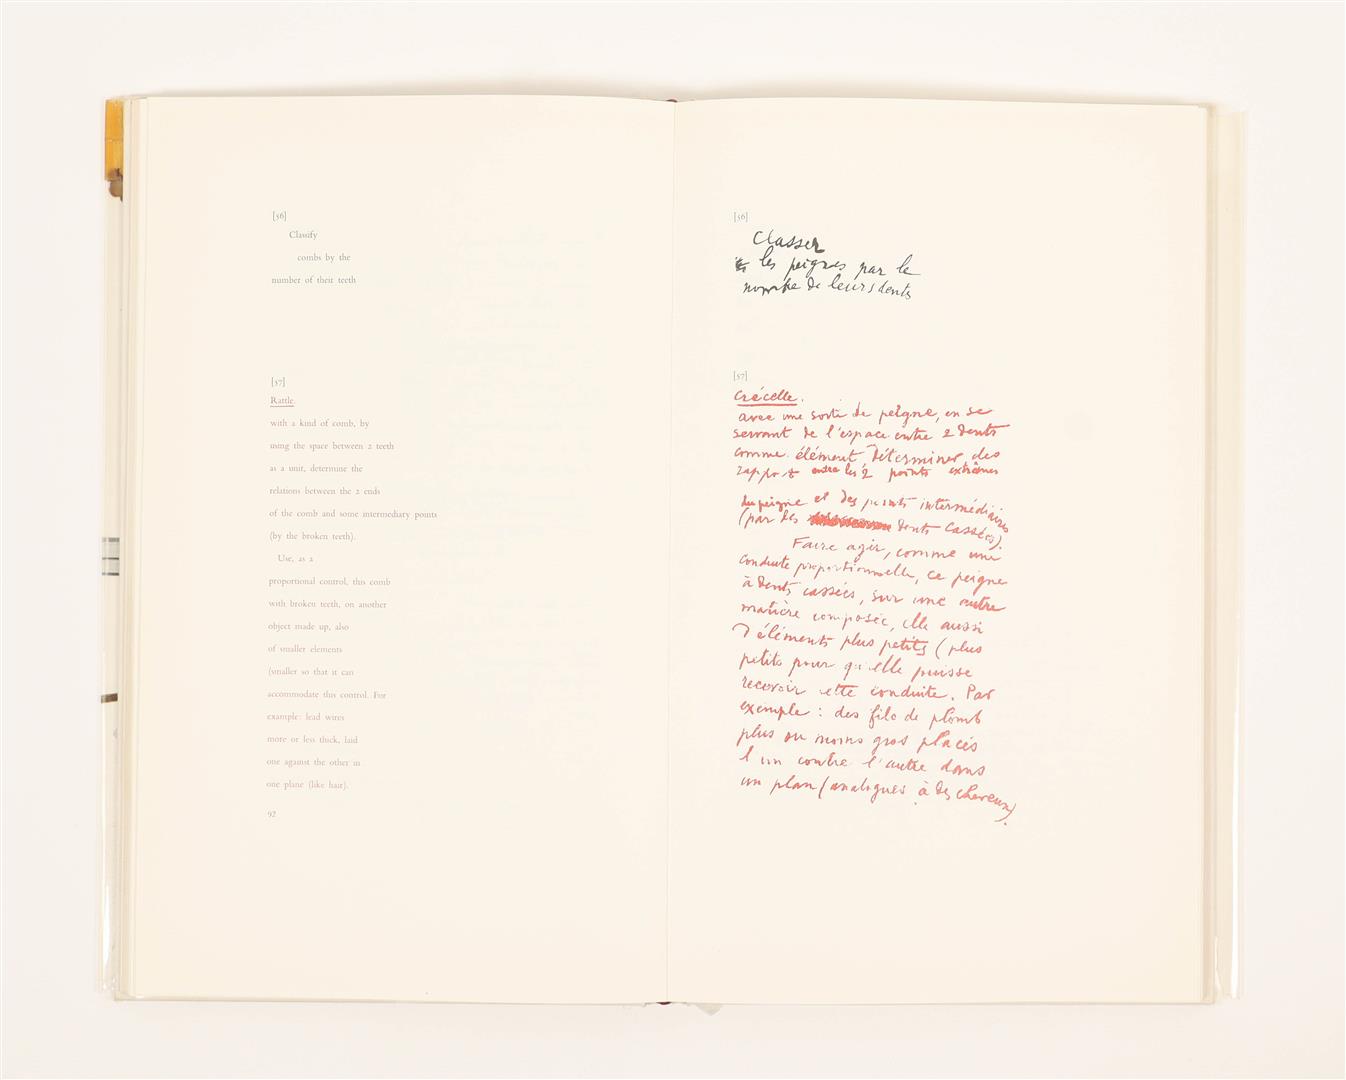 [56]
Classify
combs by the
number of their teeth
[57]
Rattle.
with a kind of comb, by
using the space between 2 teeth
as a unit, determine the
relations between the 2 ends
of the comb and some intermediary points
(by the broken teeth).
Use, as a
proportional control, this comb
with broken teeth, on another
object made up, also
of smaller elements
(smaller so that it can
accommodate this control. For
example: lead wires
more or less thick, laid
one against the other in
one plane (like hair).
92
[56]
Classer
les peignes par le
nombre de leurs dents
[57]
Crécelle.
avec une sorte de peigne, en se
servant de l'espace entre 2 dents
comme élément, Déterminer des
rapport entre les 2 points extrêmes
du peigne et des points intermédiaires
(par des dents cassées).
Faire agir, comme une
conduite proportionnelle, ce peigne
à dents cassées, sur une autre
matière composée, elle aussi
d'éléments plus petits (plus
petits pour qu'elle puisse
recevoir cette conduite. Par
exemple : des fils de plomb
plus ou moins gros placés
l'un contre l'autre dans
un plan (analogues à des cheveux).